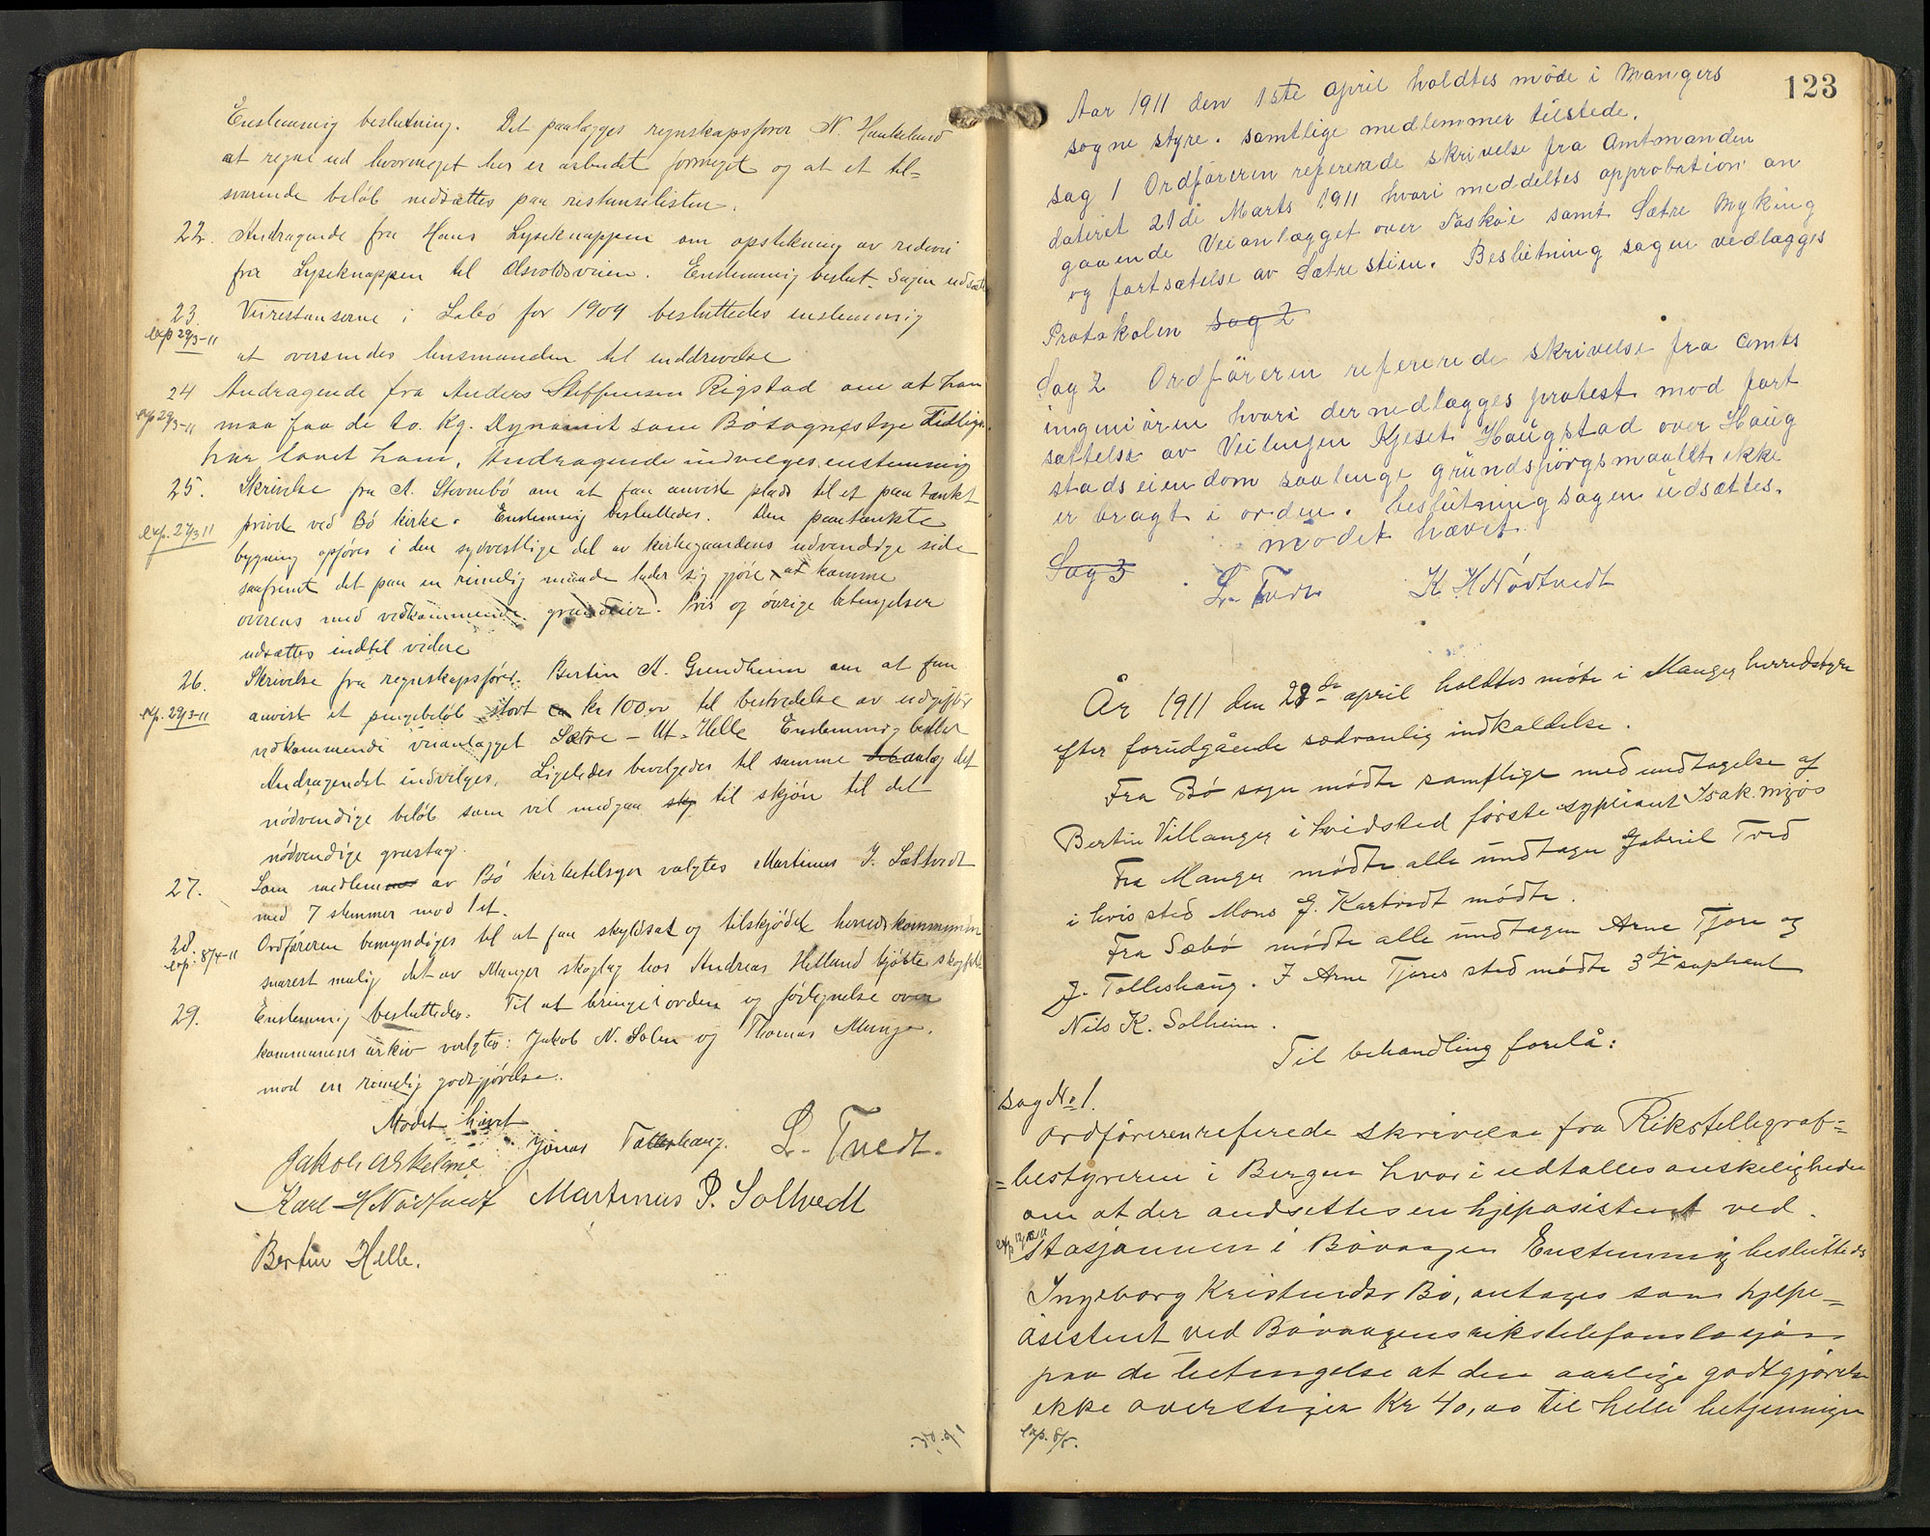 Enstemmig beslutning. Det paalægges regnskapsfører N. Haukeland
at regne ud hvormeget her er arbeidet formeget og at et til-
svarende beløb nedsættes paa restanselisten.
22. Andragende fra Hans Lyseknappen om opstikning av redevei
fra Lyseknappen til Olsvoldsveien. Enstemmig beslut. Sagen udsæt
23. Veirestanserne i Sæbø for 1909 besluttedes enstemmig
exp 29/3-11
at oversendes lensmanden til inddrivelse
24 Andragende fra Anders Steffensen Rigstad om at han
exp 29/3-11 maa faa de 20. Kg. Dynamit som Bøsognestyre Tidliger
har lovet ham. Andragende indvilges enstemmig
25. Skrivelse fra A. Stornebø om at faa anvist plads til et paatænkt
exp. 27/3 11 privet ved Bø kirke. Enstemmig besluttedes. Den paatænkte
bygning opføres i den sydvestlige del av kirkegaardens udvendige side
saafremt det paa en rimelig maade lader sig gjøre at komme
overens med vedkommende grundeier. Pris og øvrige betingelser
udsættes indtil videre
26. Skrivelse fra regnskapsfører Bertin A. Grindheim om at faa
exp. 29/3-11 anvist et pengebeløb stort ca kr 100,00 til bestridelse av udgifter
vedkommende veianlægget Sætre - Ut-Helle Enstemmig beslut
Andragendet indvilges. Ligeledes bevilgedes til samme anlæg det
nødvendige beløb som vil medgaa skj til skjøn til det
nødvendige grustag.
27. Som medlem av Bø kirketilsyn valgtes Martinus P. Soltvedt
med 7 stemmer mod 1 st.
28. Ordføreren bemyndiges til at faa skyldsat og tilskjødet herredskommunen
exp. 8/4-11
snarest mulig det av Manger skoglag hos Andreas Helland kjøbte skogfelt
29. Enstemmig besluttedes. Til at bringe i orden og førtegnelse over
kommunens arkiv valgtes: Jakob N. Solem og Thomas Manger.
mod en rimelig godtgjørelse.
Mødet hævet
Jakob Askeland Jonas Tolleshaug. L. Tvedt.
Karl H Nødtvedt Martinus P. Soltvedt
Bertin Helle.
123
Aar 1911 den 1ste april holdtes møde i Mangers
sogne styre. samtlige medlemmer tilstede.
sag 1 Ordføreren refererede skrivelse fra Amtmanden
dateret 21de Marts 1911 hvori meddeltes approbation an
gaaende Veianlægget over Toskøie samt Sætre Myking
og fortsættelse av Sætrestien. Beslutning sagen vedlægges
Protokolen sag 2
Sag 2 Ordføreren refererede skrivelse fra amts
ingeniøren hvori der nedlægges protest mod fort
sættelse av Veilinjen Kjeset Haugstad over Haug
stads eiendom saalenge grundspørgsmaallet ikke
er bragt i orden. beslutning sagen udsættes.
mødet hævet.
Sag 3 L. Tvedt K H Nødtvedt
År 1911 den 28de april holdtes møte i Manger herredstyre
efter forudgående sædvanlig indkaldelse.
Fra Bø sogn mødte samtlige med undtagelse af
Bertin Villanger i hvidsted første supliant Isak Mjøs
Fra Manger mødte alle undtagen Gabriel Tved
i hvis sted Mons J. Kartvedt mødte.
Fra Sæbø mødte alle undtagen Arne Tjore og
J. Tolleshaug. I Arne Tjores sted mødte 3dje supleant
Nils K. Solheim.
Til behandling forelå:
Sag No 1.
Ordførerenreferede skrivelse fra Rikstellegraf-=
=bestyreren i Bergen hvori udtalles ønskeligheden
om at der andsettes en hjepasistent ved.
stasjonnen i Bøvaagen Enstemmig besluttedes
Ingeborg Kristendtr Bø, antages som hjelpe=
asistent ved Bøvaagens rikstelefonstasjon
paa de betingelse at den aarlige godtgjørelse
ikke overstiger Kr 40,00 til hele betjenningen
exp. 8/5.